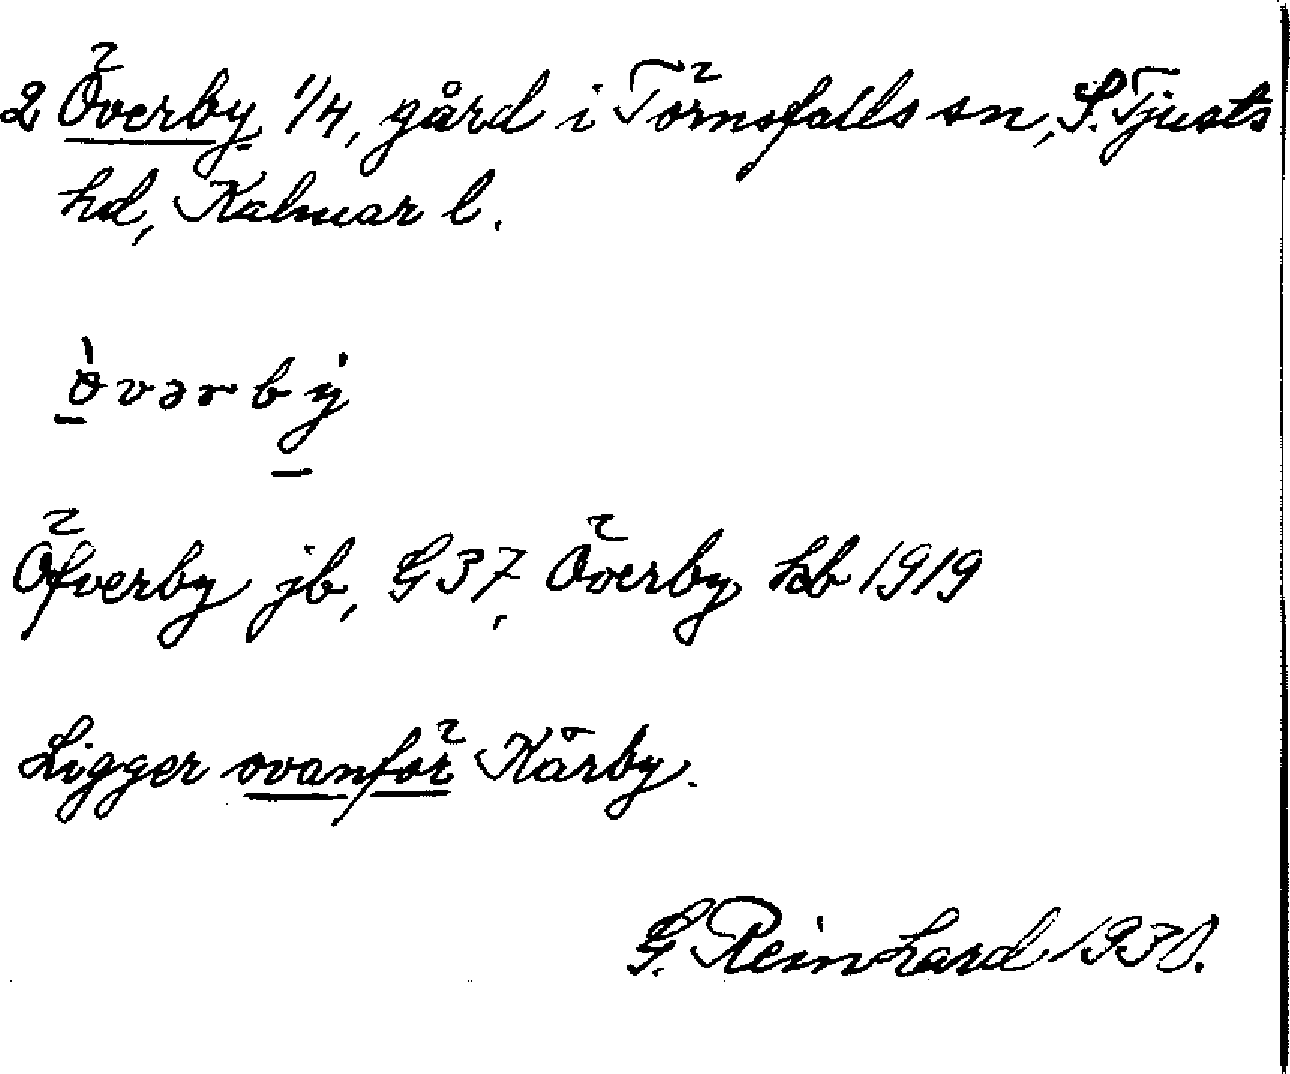 2 Överby 1/4, gård i Törnsfalls sn, S. Tjusts
hd, Kalmar l.
òvərbý
Öfverby jb, G 37, Överby kb 1919
Ligger ovanför Kärby.
G. Reinhard 1930.